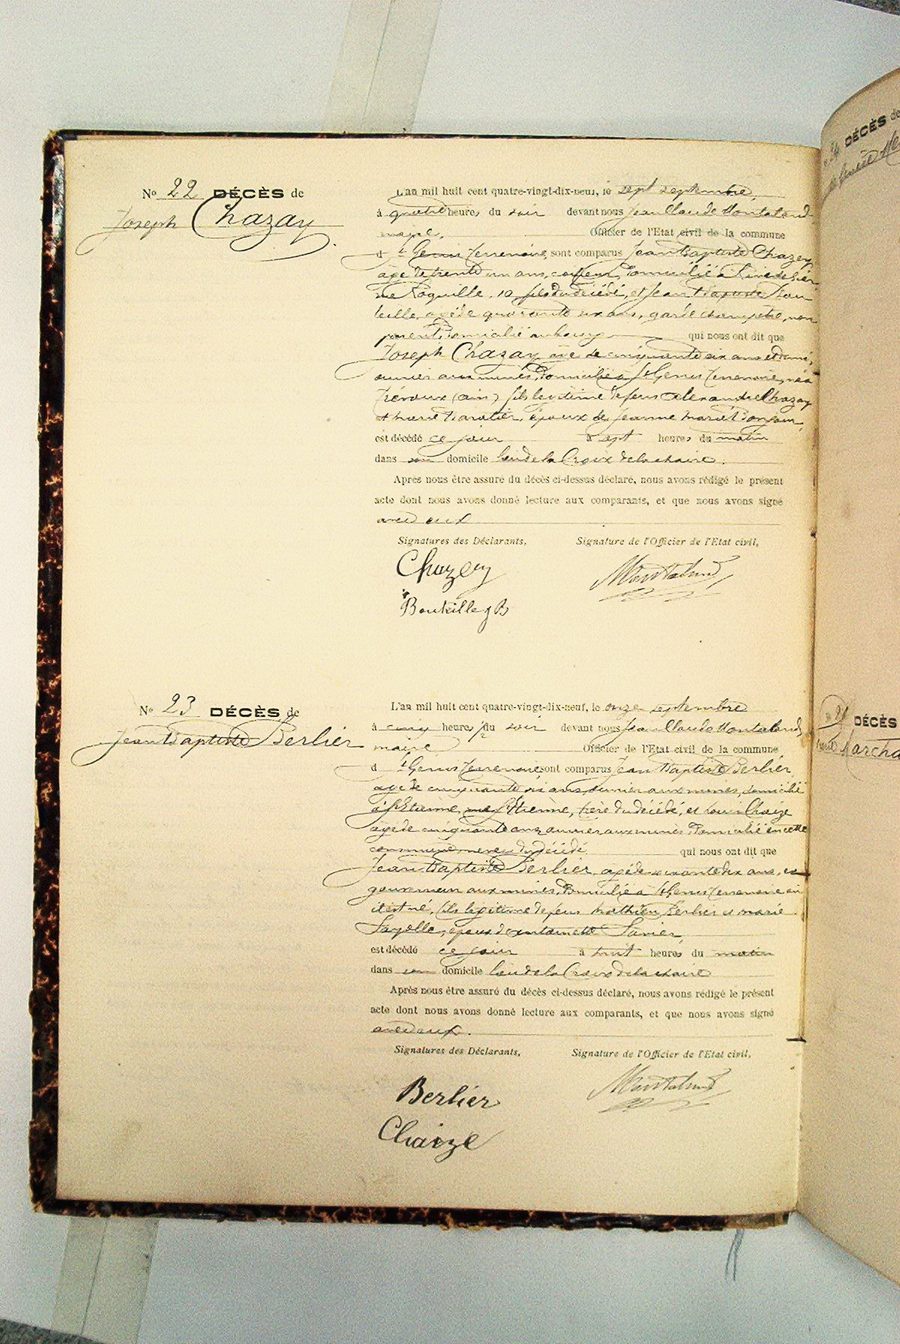 No 22 DÉCÈS de
Joseph Chazay
L'an mil huit cent quatre-vingt-dix-neuf, le sept septembre,
à quatre heures du soir devant nous Jean Claude Montaland
maire, Officier de l'Etat civil de la commune
d St Genis Terrenoire, sont comparus Jean Baptiste Chazay,
agé de trente un ans, coiffeur, domicilié à Rive de Gier,
rue 10 fils du décédé, et Jean Baptiste Bou
teille, agé de quarante six ans, garde champêtre, non
parent, domicilié au bourg qui nous ont dit que
Joseph Chazay agé de cinquante six ans et demi,
ouvrier aux mines, domicilié à St Genis Terrenoire, né à
Trévoux (ain) fils légitime de feus Alexandre Chazay
et Marie époux de Jeanne Marie
est décédé ce jour à sept heures du matin
dans son domicile lieu de la Croix de la
Après nous être assuré du décès ci-dessus déclaré, nous avons rédigé le présent
acte dont nous avons donné lecture aux comparants, et que nous avons signé
avec eux
Signatures des Déclarants, Signature de l'Officier de l'Etat civil,
Chazay Montaland
Bouteille JB
No 23 DÉCÈS de
Jean Baptiste Berlier
L'an mil huit cent quatre-vingt-dix-neuf, le onze septembre
à cinq heures du soir devant nous Jean Claude Montaland,
maire Officier de l'Etat civil de la commune
d St Genis Terrenoire sont comparus Jean Baptiste Berlier,
agé de cinquante six ans, ouvrier aux mines, domicilié
à St Etienne, frère du décédé, et Louis Chaize
agé de cinquante ans, ouvrier aux mines, domicilié en cette
commune neveu du décédé qui nous ont dit que
Jean Baptiste Berlier, agé de soixante dix ans, ex
gouverneur aux mines, domicilié à St Genis Terrenoire où
il est né, fils légitime de feus Mathieu Berlier et Marie
Fayolle, époux de Antoinette
est décédé ce jour à huit heures du matin
dans son domicile lieu de la Croix de la
Après nous être assuré du décès ci-dessus déclaré, nous avons rédigé le présent
acte dont nous avons donné lecture aux comparants, et que nous avons signé
avec eux.
Signatures des Déclarants, Signature de l'Officier de l'Etat civil,
Berlier Montaland
Chaize
DÉCÈS de
DÉCÈS